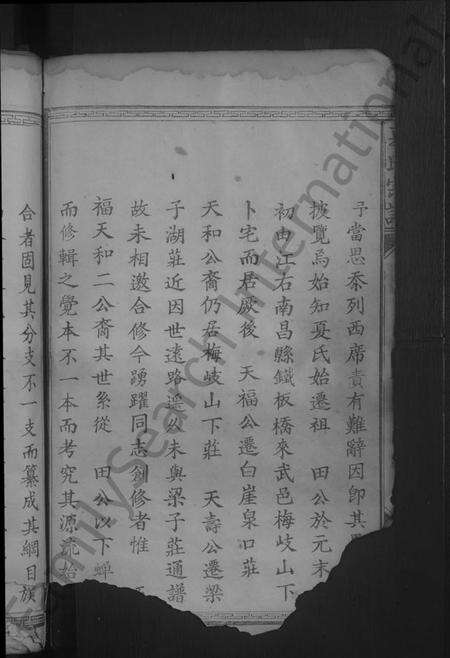 予當思忝列西席責有難辭因即其
披覽焉始知夏氏始遷祖 田公於元末
初由江右南昌縣鐵板橋來武邑梅岐山下
卜宅而居厥後 天福公遷白崖泉口莊
天和公裔仍居梅岐山下莊 天壽公遷梁
子湖莊近因世遠路遥以未與梁子莊通譜
故未相邀合修今踴躍同志創修者惟
福天和二公裔其世系從 田公以下蟬
而修輯之覺本不一本而考究其源流始
合者固見其分支不一支而纂成其綱目族
FamilySearch International